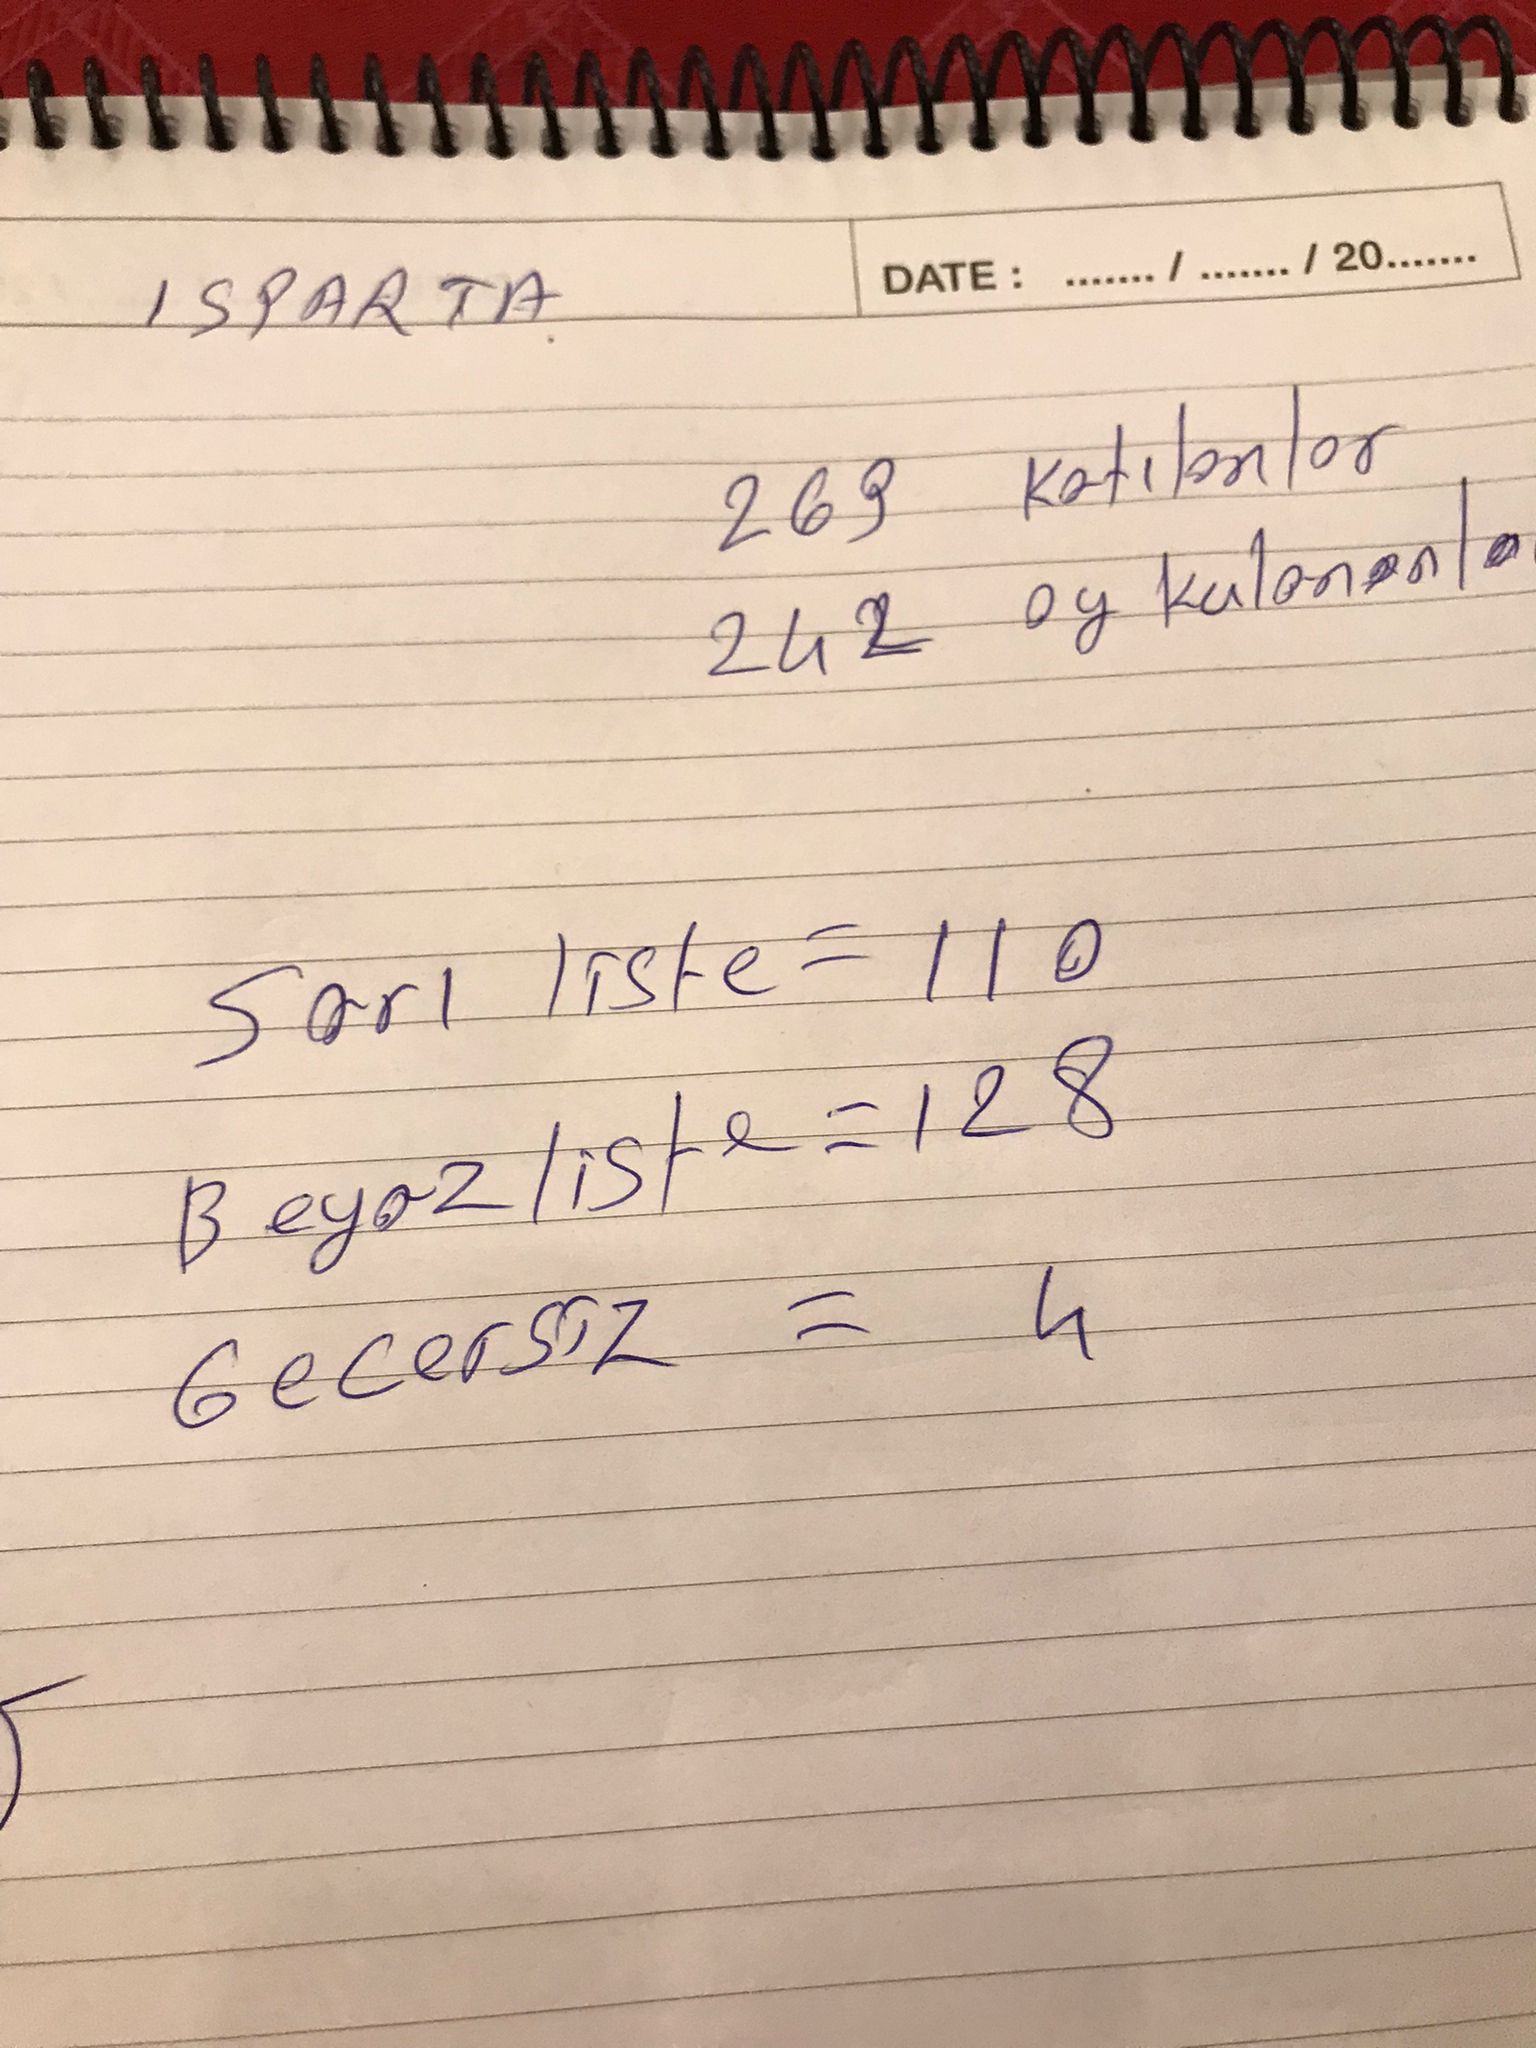 ISPARTA
DATE : ....... / ....... / 20.......
269 Katılanlar
242 oy kulananla
Sarı liste = 110
Beyaz liste = 128
Gecersiz = 4